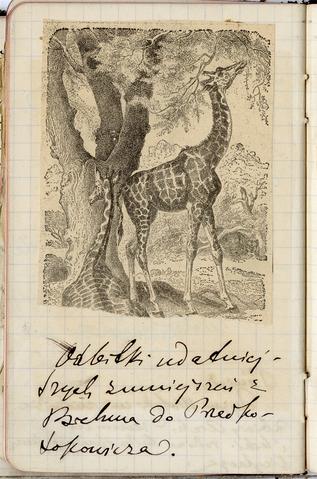 Odbitki udatniej-
szych zmniejszeń z
Brehma do Przedpo-
topowicza.